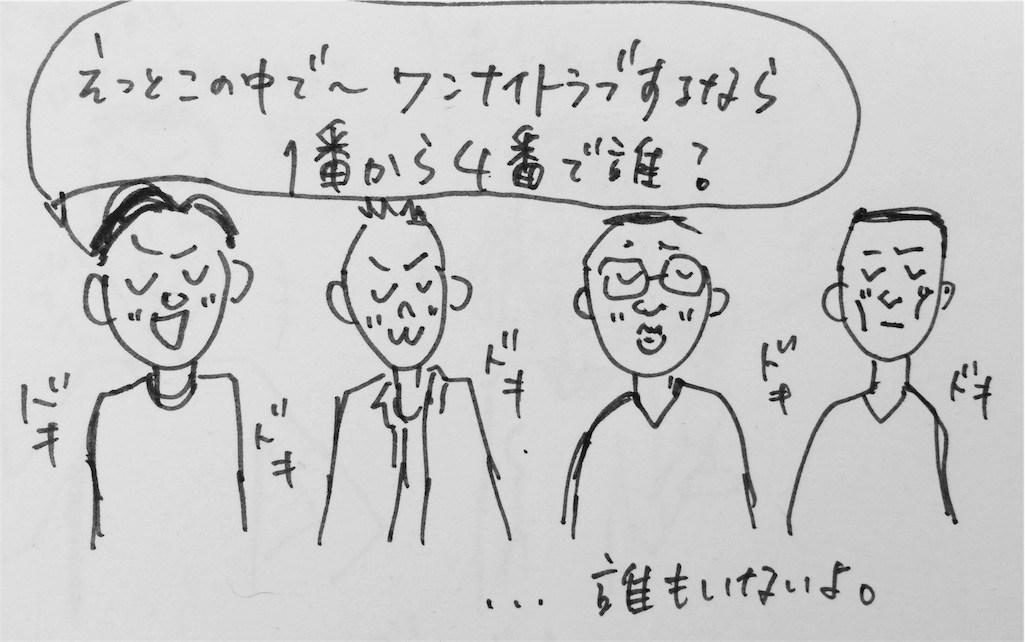 えっとこの中で〜 ワンナイトラブするなら
1番から4番で誰?
ドキ
ドキ
ドキ
ドキ
ドキ
... 誰もいけないよ。